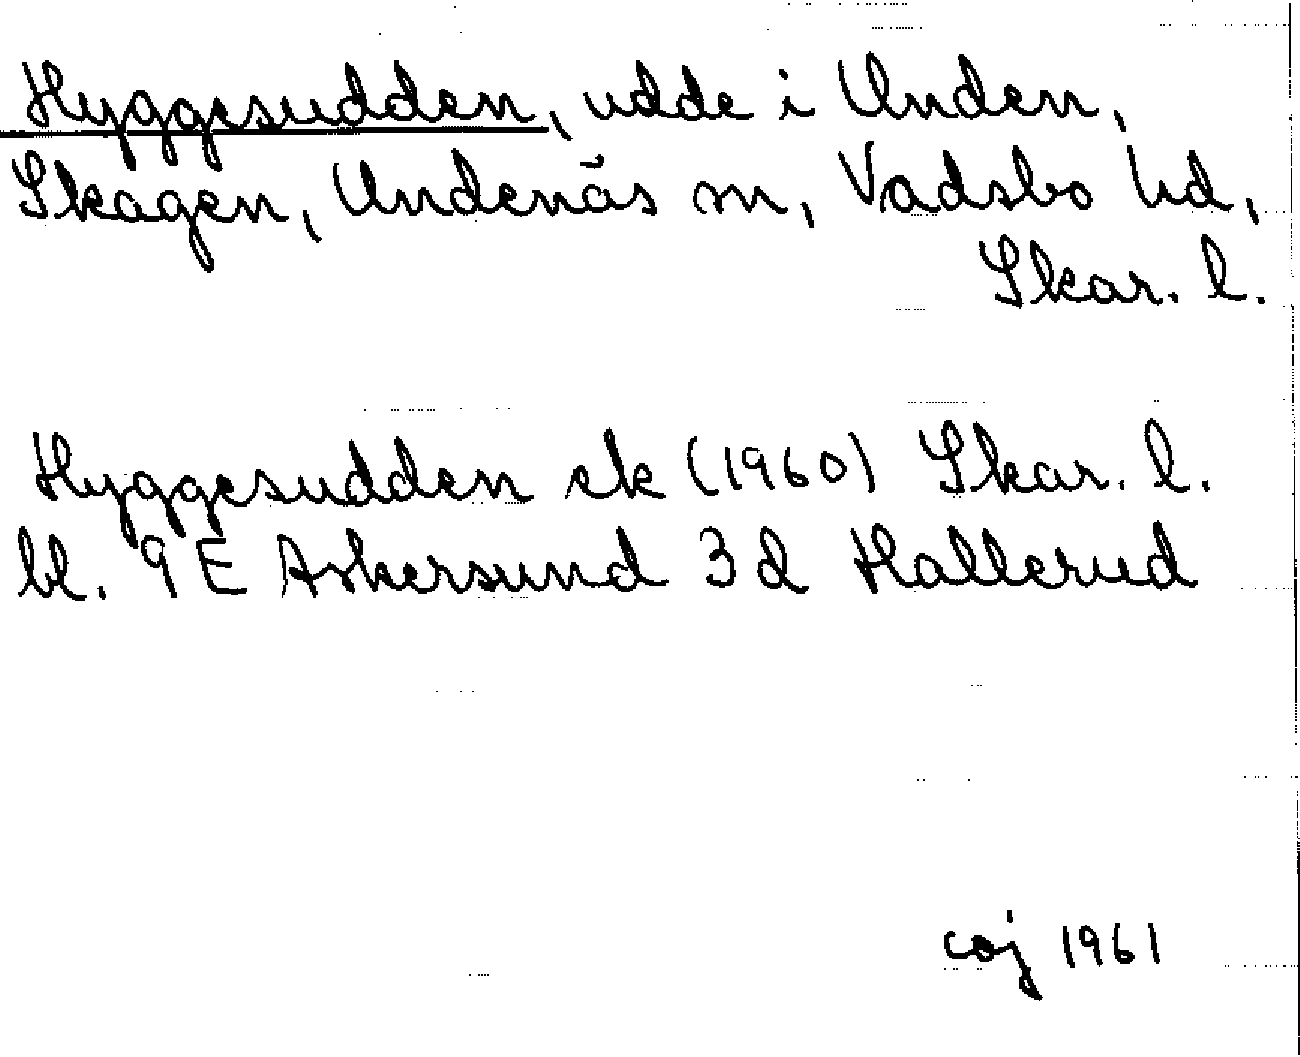 Hyggesudden, udde i Unden,
Skagen, Undenäs sn, Vadsbo hd,
Skar. l.
Hyggesudden ek (1960) Skar. l.
bl. 9 E Askersund 3 d Hallerud
coj 1961